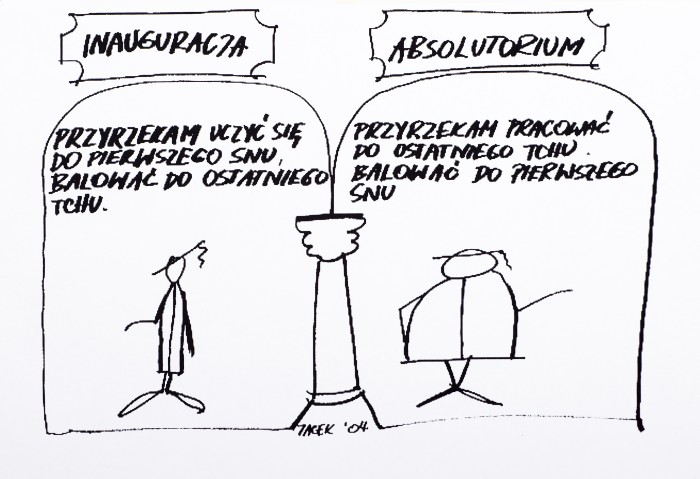 INAUGURACJA
PRZYRZEKAM UCZYĆ SIĘ
DO PIERWSZEGO SNU,
BALOWAĆ DO OSTATNIEGO
TCHU.
ABSOLUTORIUM
PRZYRZEKAM PRACOWAĆ
DO OSTATNIEGO TCHU.
BALOWAĆ DO PIERWSZEGO
SNU
JACEK '04